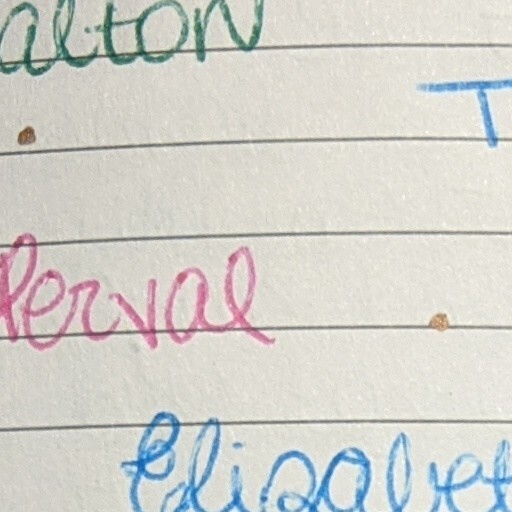 alton
T
Perval
Elizabet